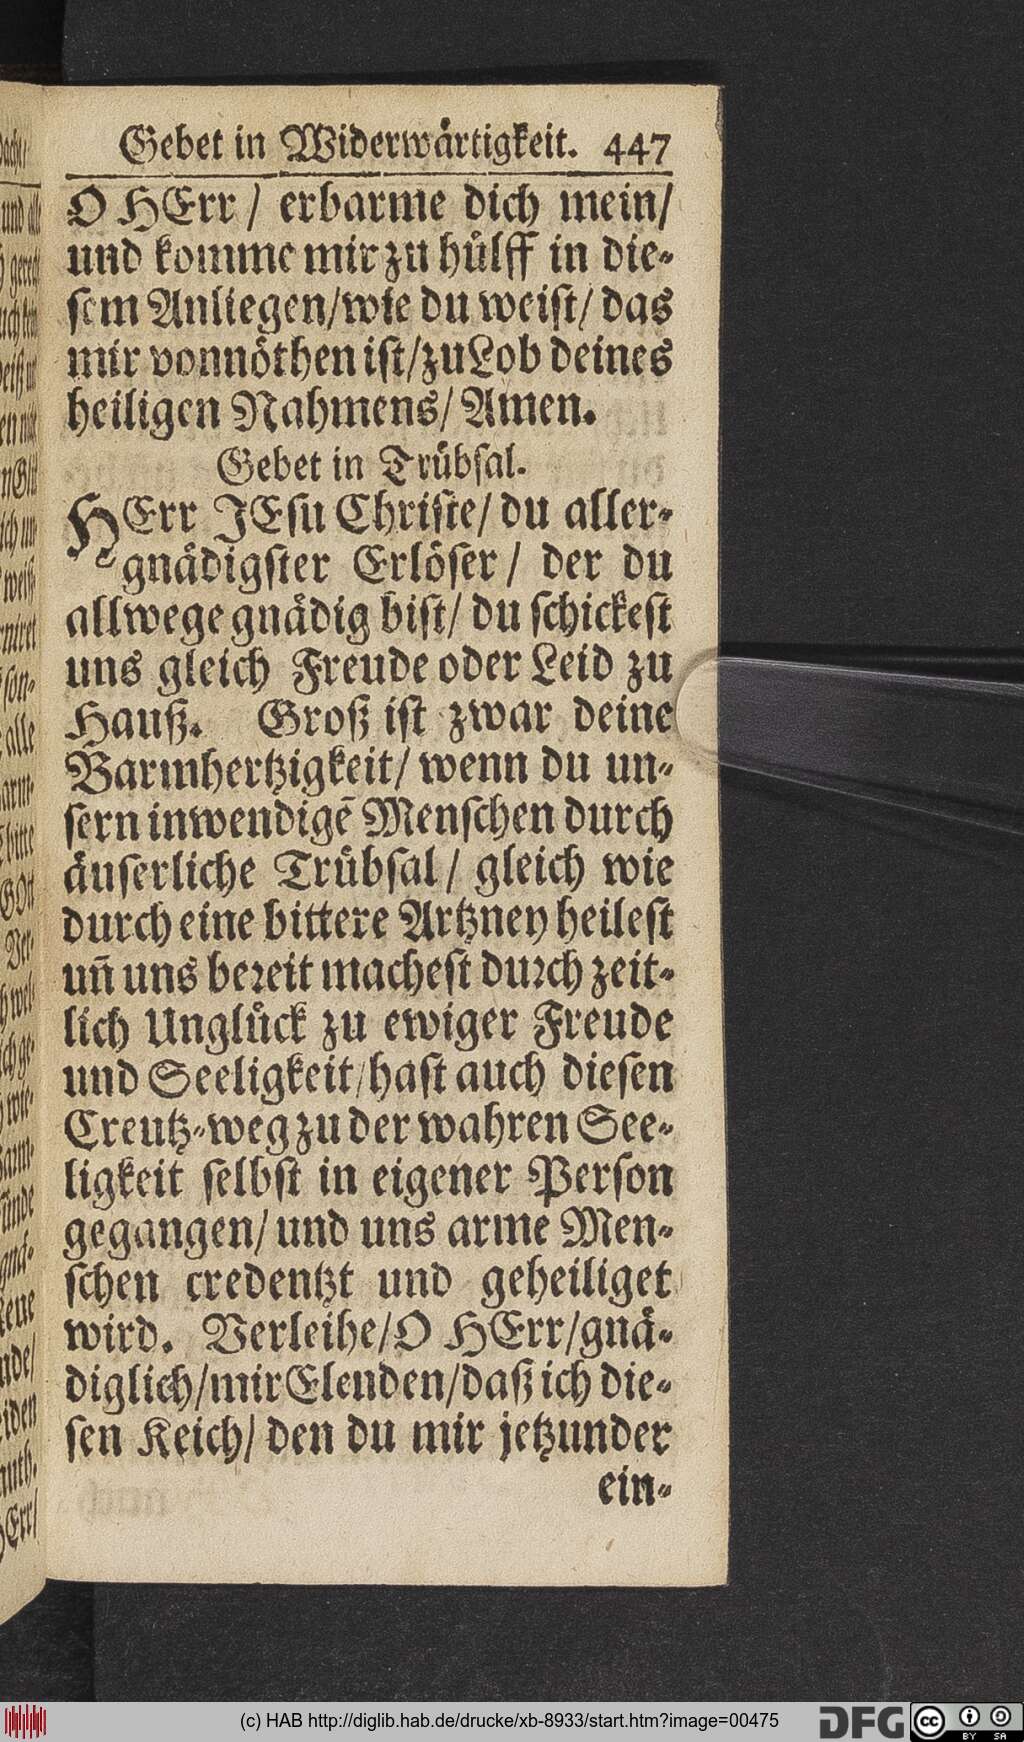 Gebet in Widerwärtigkeit. 447
O HErr / erbarme dich mein/
und komme mir zu hülff in die-
sem Anliegen/wie du weist/ das
mir vonnöthen ist/zu Lob deines
heiligen Nahmens/ Amen.
Gebet in Trübsal.
HErr JEsu Christe/ du aller-
gnädigster Erlöser / der du
allwege gnädig bist/ du schickest
uns gleich Freude oder Leid zu
Hauß. Groß ist zwar deine
Barmhertzigkeit/ wenn du un-
sern inwendigē Menschen durch
äuserliche Trübsal / gleich wie
durch eine bittere Artzney heilest
un̄ uns bereit machest durch zeit-
lich Unglück zu ewiger Freude
und Seeligkeit/hast auch diesen
Creutz-weg zu der wahren See-
ligkeit selbst in eigener Person
gegangen/ und uns arme Men-
schen credentzt und geheiliget
wird. Verleihe/O HErr/gnä-
diglich/mir Elenden/daß ich die-
sen Keich/ den du mir jetzunder
ein-
(c) HAB http://diglib.hab.de/drucke/xb-8933/start.htm?image=00475
DFG
cc BY SA